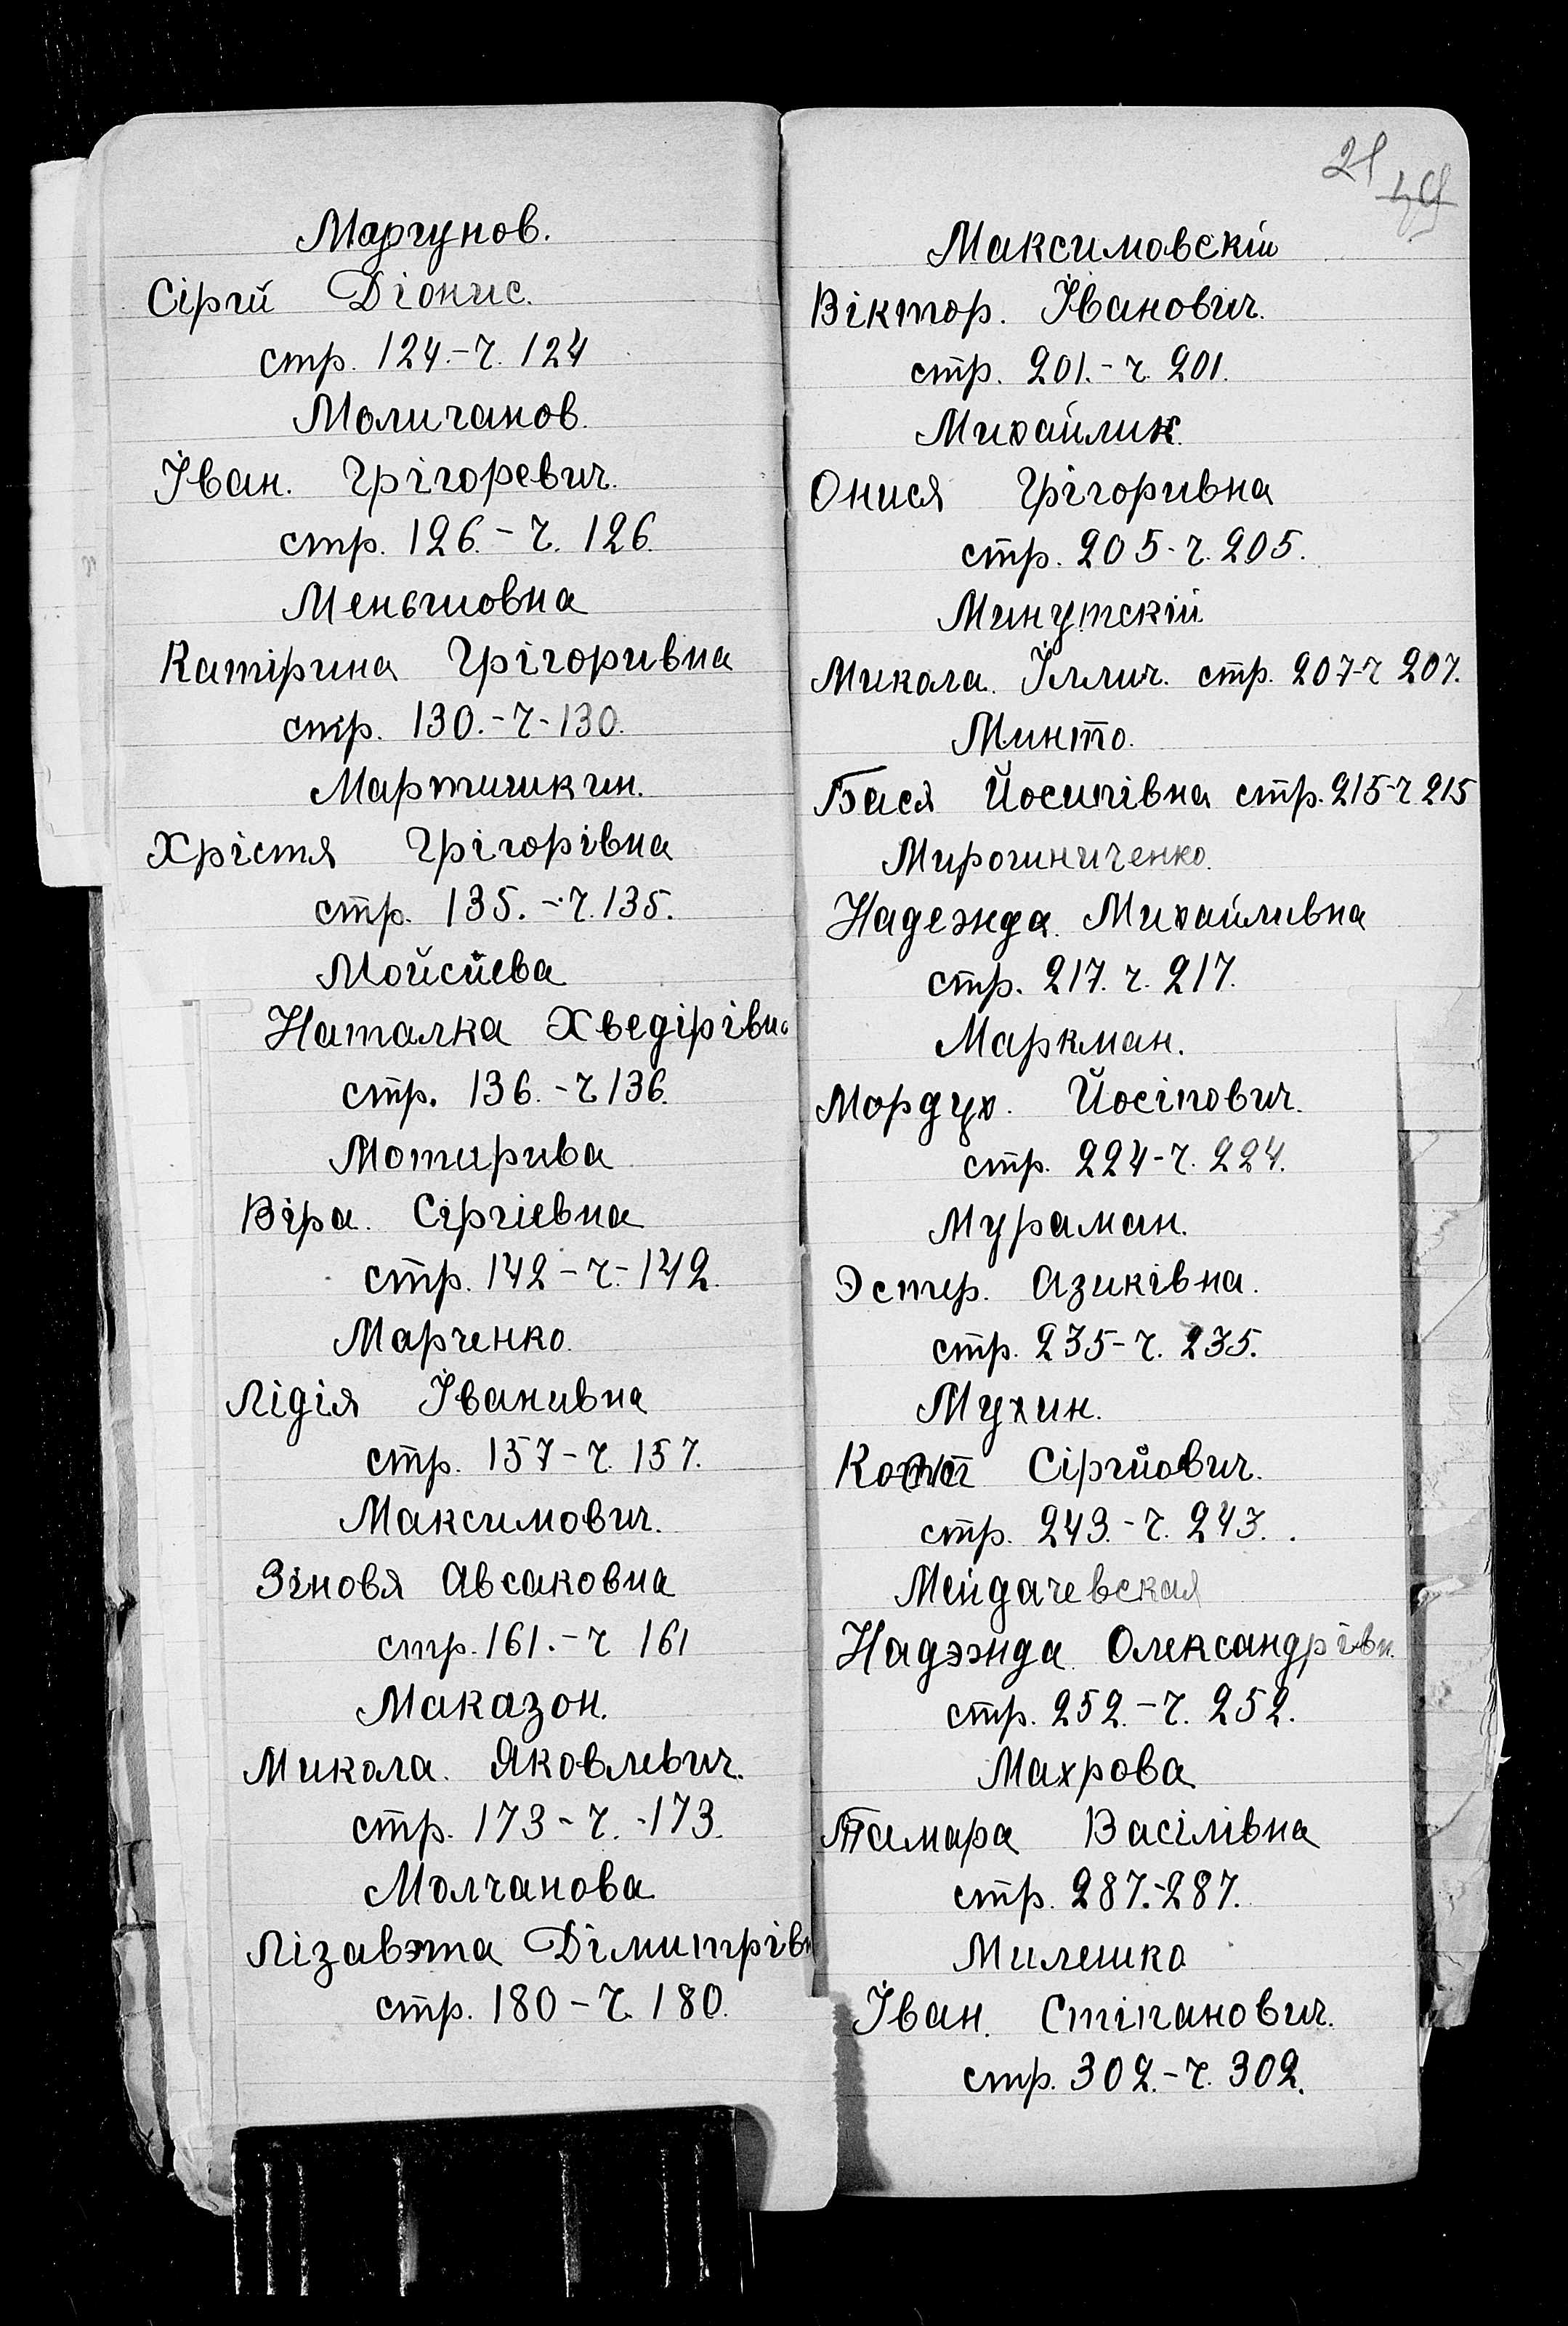 Маргунов.
Сіргій Діонис.
стр. 124.-ч. 124
Моличанов.
Іван. Грігоревич.
стр. 126.-ч. 126.
Меньшовна
Катірина Грігоривна
стр. 130.-ч-130.
Мартишкин.
Хрістя Грігорівна
стр. 135.-ч. 135.
Мойсиева
Наталка Хведірівна
стр. 136.-ч 136.
Мотирива
Віра. Сіргіевна
стр. 142-ч.-142.
Марченко.
Лідія Іванивна
стр. 157-ч. 157.
Максимович.
Зіновя Авсаковна
стр. 161.-ч 161
Маказон.
Микола. Яковлевич.
стр. 173-ч.-173.
Молчанова
Лізавэта Дімитрівн
стр. 180-ч. 180.
21
Максимовскій
Віктор. Іванович.
стр. 201.-ч. 201.
Михайлик.
Онися Грігоривна
стр. 205-ч. 205.
Минутскій
Микола. Іллич. стр. 207-ч 207.
Минто.
Бася Йосипівна стр. 215-ч 215
Мирошниченко.
Надежда. Михайливна
стр. 217. ч. 217.
Маркман.
Мордух. Йосіпович.
стр. 224-ч. 224.
Мураман.
Эстер. Азиківна.
стр. 235-ч. 235.
Мухин.
Сіргійович.
стр. 243.-ч. 243.
Мейдачевская
Надэжда. Олександрівн.
стр. 252.-ч. 252.
Махрова
Тамара Васілівна
стр. 287.-287.
Милешко
Іван. Стіпанович.
стр. 302.-ч. 302.